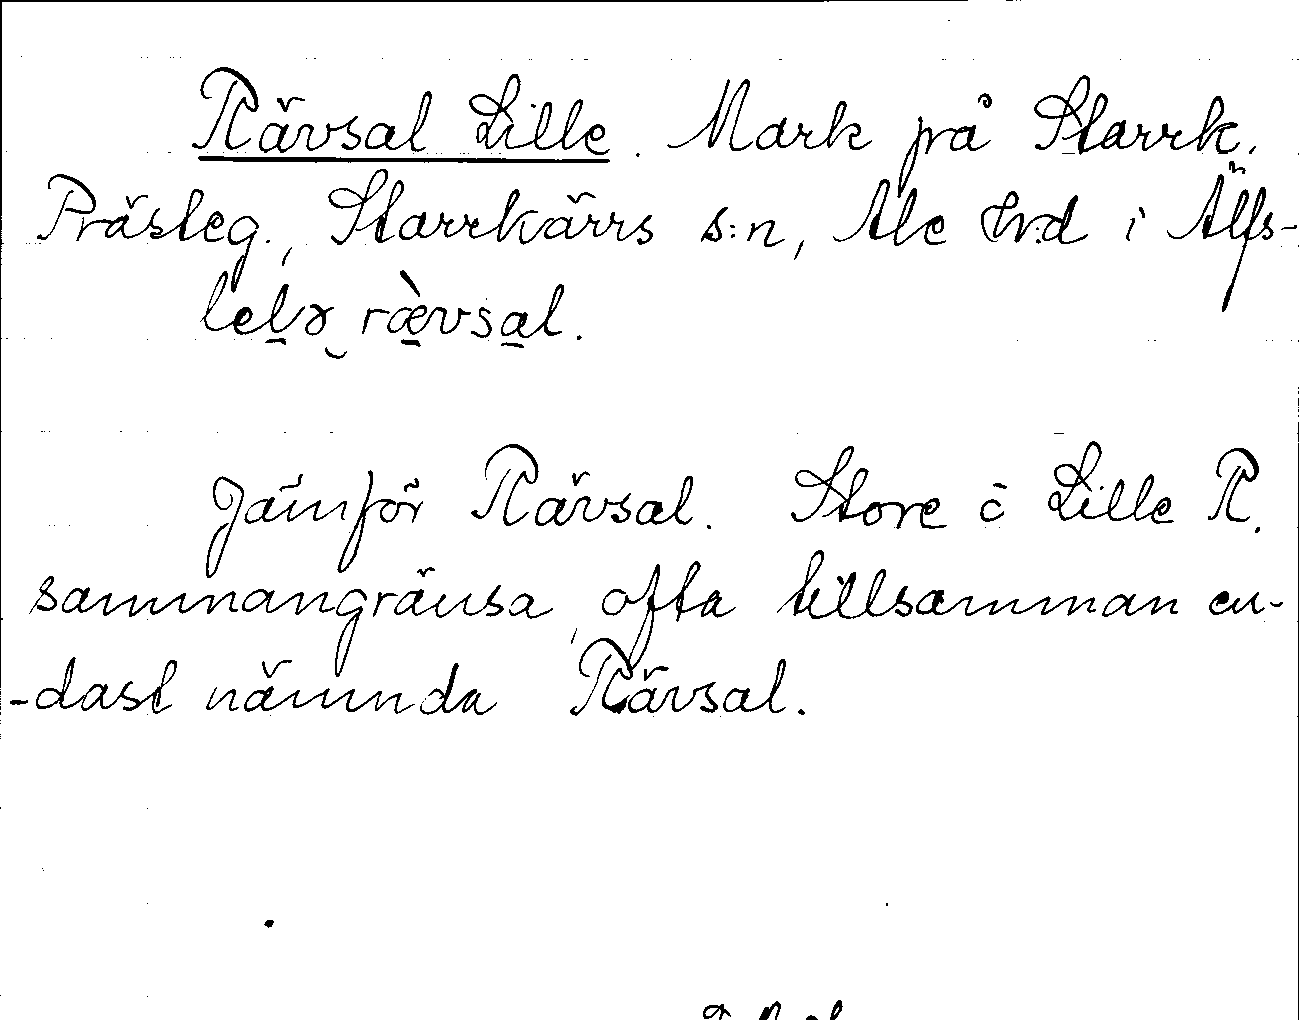 Rävsal Lille. Mark på Starrk.
Prästeg., Starrkärrs s:n, Ale Hrd i Älfs-
lelə rævsal.
Jämför Rävsal. Store o Lille R.
sammangränsa, ofta tillsamman en-
-dast nämnda Rävsal.